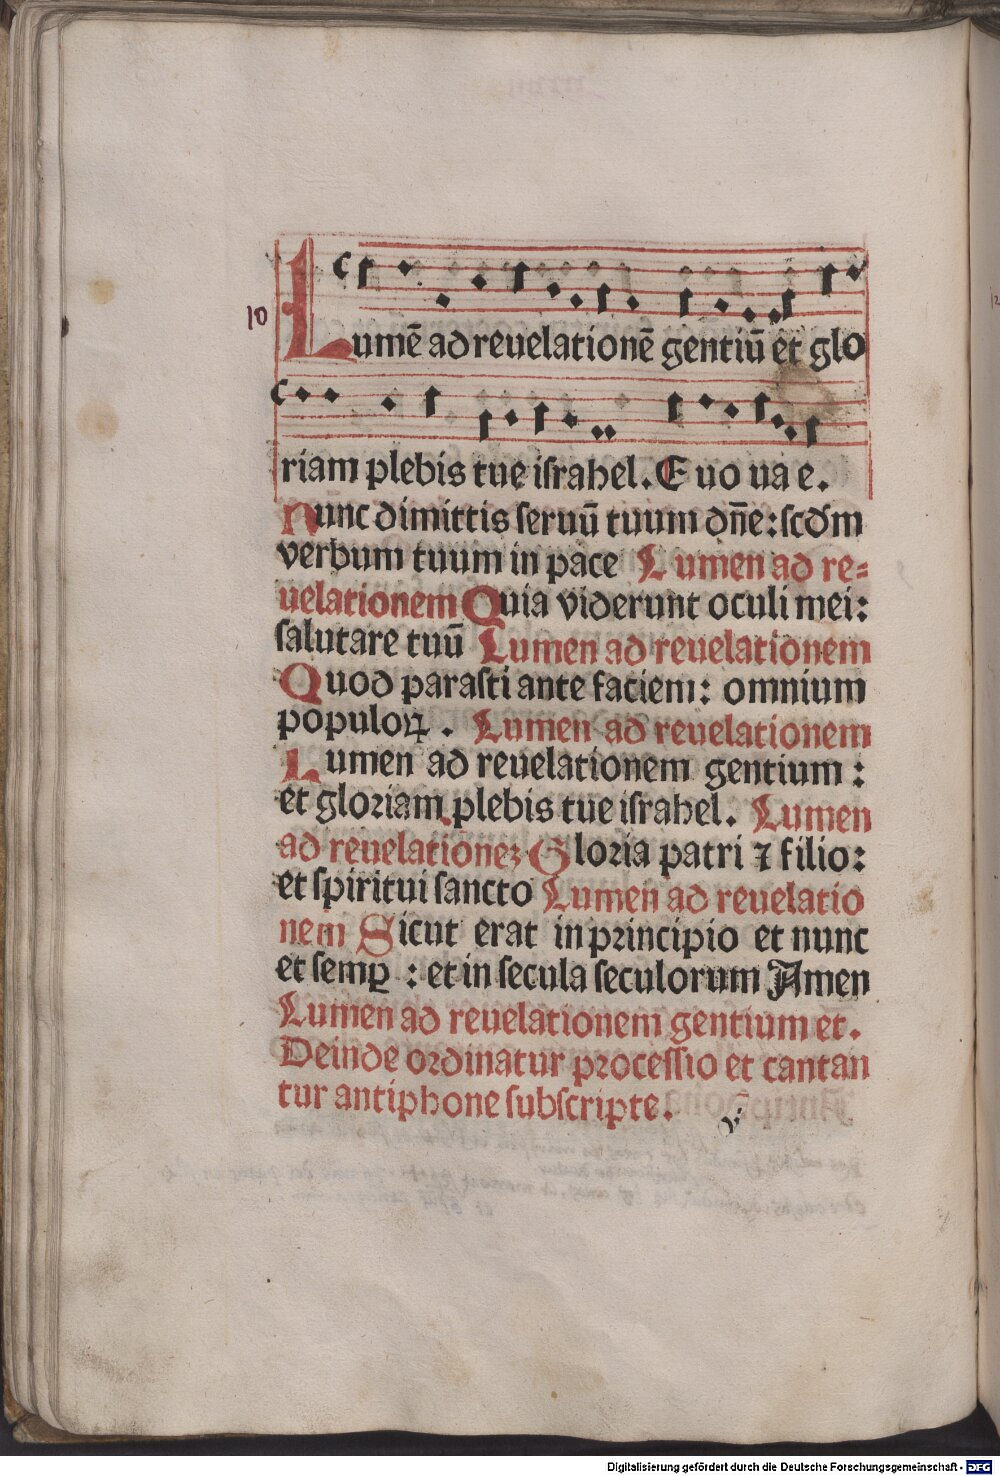 10
Lumē ad reuelationē gentiū et glo
riam plebis tue israhel. E uo ua e.
Nunc dimittis seruū tuum dn̄e: scd'm
verbum tuum in pace Lumen ad re=
uelationem Quia viderunt oculi mei:
salutare tuū Lumen ad reuelationem
Quod parasti ante faciem: omnium
populoꝝ. Lumen ad reuelationem
Lumen ad reuelationem gentium:
et gloriam plebis tue israhel. Lumen
ad reuelationeꝫ Gloria patri ⁊ filio:
et spiritui sancto Lumen ad reuelatio
nem Sicut erat in principio et nunc
et semꝑ : et in secula seculorum Amen
Lumen ad reuelationem gentium et.
Deinde ordinatur processio et cantan
tur antiphone subscripte.
Digitalisierung gefördert durch die Deutsche Forschungsgemeinschaft - DFG